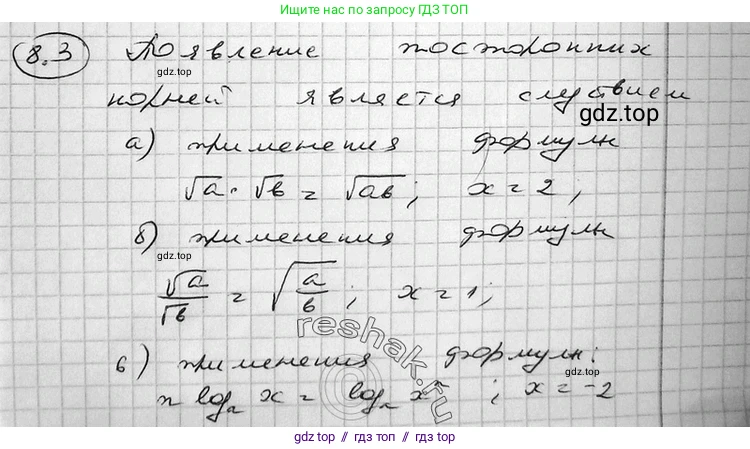 Ищите нас по запросу ГДЗ ТОП
8.3 Появление посторонних
gdz.top
корней является следствием
gdz.top
а) применения формулы
√a · √b = √ab ; x = 2 ;
б) применения формулы
gdz.top
√a/√b = √(a/b) ; x = 1 ;
reshak.ru
в) применения формулы:
n logₐ x = logₐ xⁿ ; x = -2
gdz.top
gdz.top // gdz.top // gdz.top